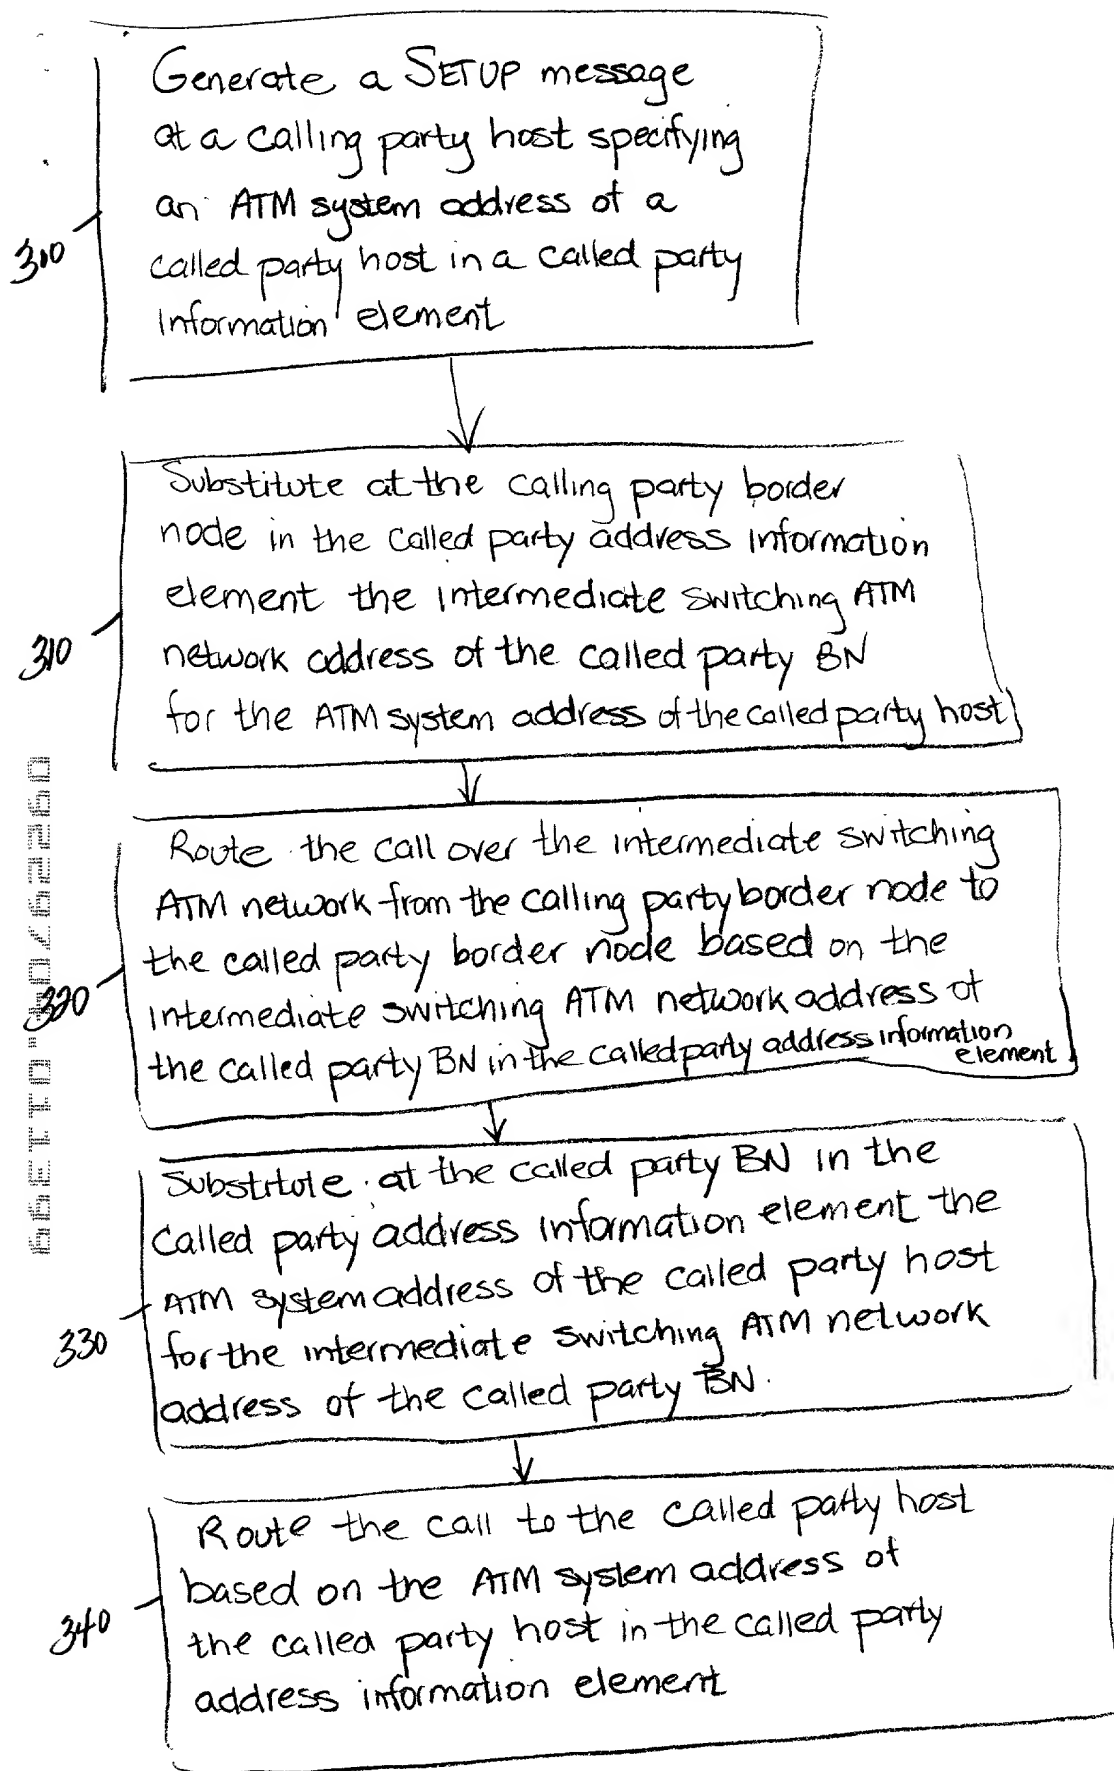 Generate a SETUP message
at a calling party host specifying
an ATM system address of a
310
called party host in a called party
information element
Substitute at the calling party border
node in the called party address information
element the intermediate switching ATM
310
network address of the called party BN
for the ATM system address of the called party host
Route the call over the intermediate switching
ATM network from the calling party border node to
the called party border node based on the
320
intermediate switching ATM network address of
the called party BN in the called party address information
element
Substitute at the called party BN in the
called party address information element the
ATM system address of the called party host
330
for the intermediate switching ATM network
address of the called party BN.
Route the call to the called party host
based on the ATM system address of
340
the called party host in the called party
address information element